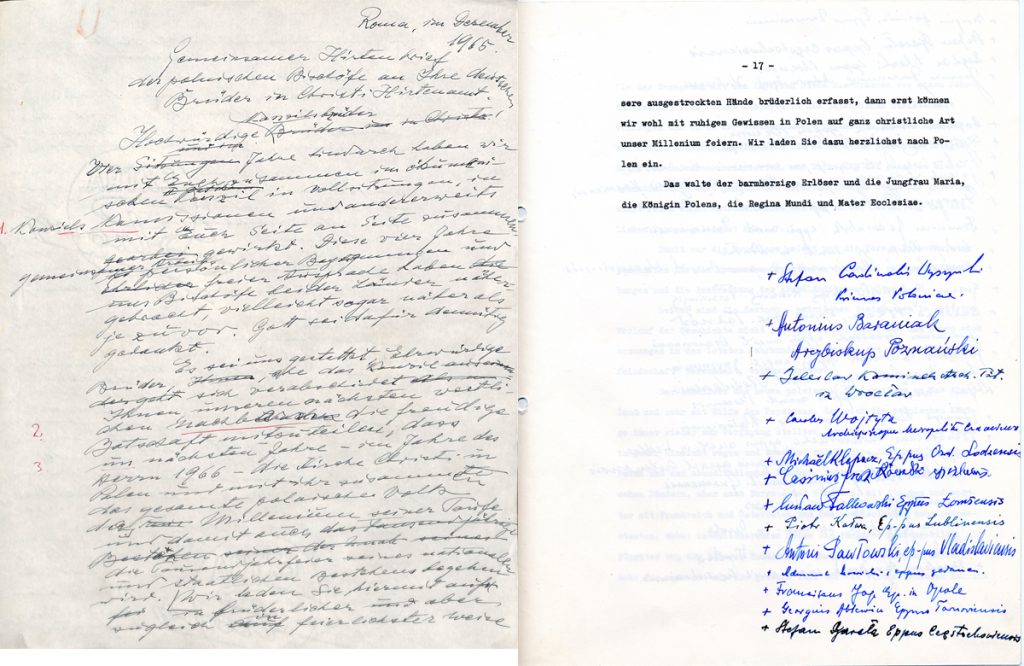 Roma, im Dezember
1965.
Gemeinsamer Hirtenbrief
der polnischen Bischöfe an Ihre deutschen
Brüder in Christi Hirtenamt.
Konzilsbrüder
Hochwürdige Brüder in Christo!
Vier Jahre hindurch haben wir
mit zusammen im ökumeni
schen Konzil in Vollsitzungen, in
1. Konzils Kommissionen und anderweits
mit Euch Seite an Seite zusammen
gearbei gewirkt. Diese vier Jahre
gemeinsamer
persönlicher Begegnungen und
freier haben
uns Bischöfe beider Länder näher
gebracht vielleicht sogar näher als
je zuvor. Gott sei dafür demütig
gedankt.
Es sei uns gestattet, Ehrwürdige
Brüder, ehe das Konzil
sich verabschiedet
Ihnen, unseren nächsten westli
chen Nachbarn die freudige
2. Botschaft mitzuteilen, dass
im nächsten Jahre – im Jahre des
3 Herrn 1966 – die Kirche Christi in
Polen und mit ihr zusammen
das gesamte polnische Volk
das Millenium seiner Taufe
und damit auch das
Bestehen
die Tausendjahrfeier seines nationalen
und staatlichen Bestehens begehen
wird. Wir laden Sie hiermit
in brüderlicher und aber
zugleich feierlichster Weise
- 17 -
sere ausgestreckten Hände brüderlich erfasst, dann erst können
wir wohl mit ruhigem Gewissen in Polen auf ganz christliche Art
unser Millenium feiern. Wir laden Sie dazu herzlichst nach Po-
len ein.
Das walte der barmherzige Erlöser und die Jungfrau Maria,
die Königin Polens, die Regina Mundi und Mater Ecclesiae.
+ Stefan Cardinalis Wyszyński
Primas Poloniae.
+ Antonius Baraniak
Arcybiskup Poznański
+ Boleslav Kominek Arch. Tit.
in Wrocław
+ Carolus Wojtyła
Archiepiscopus Metropolita Cracoviensis
+ Michaël Klepacz, Eppus Ord. Lodzensis
+ Casimirus
+ Czesław Falkowski Eppus Łomżensis
+ Piotr Kałwa, Ep-pus Lublinensis
+ Antoni Pawłowski ep-pus Vladislaviensis
+ eppus
+ Franciscus Jop Ep. in Opole
+ Georgius Ablewicz Eppus Tarnoviensis
+ Stefan Bareła Eppus Częstochoviensis